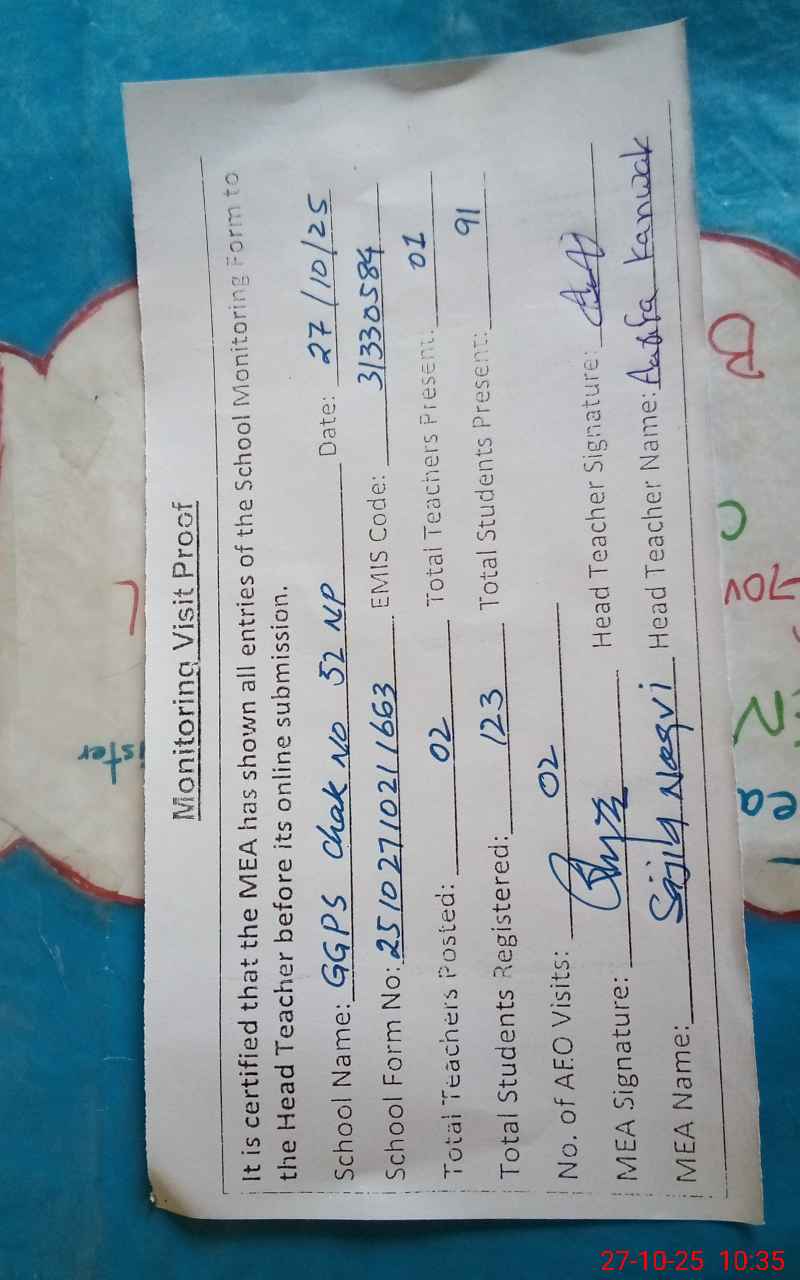 Monitoring Visit Proof
It is certified that the MEA has shown all entries of the School Monitoring Form to
the Head Teacher before its online submission.
School Name: GGPS Chak No 52 NP Date: 27/10/25
School Form No: 25102710211663 EMIS Code: 31330584
Total Teachers Posted: 02 Total Teachers Present: 01
Total Students Registered: 123 Total Students Present: 91
No. of AEO Visits: 02
MEA Signature: Head Teacher Signature:
MEA Name: Naqvi Head Teacher Name: Kanwal
ister
27-10-25 10:35